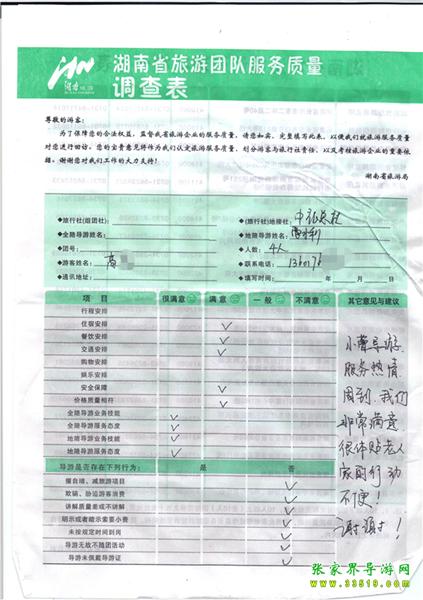 湖南省旅游团队服务质量
调查表
尊敬的游客：
为了保障您的合法权益，监督我省旅游企业的服务质量，请您如实、完整填写此表，以便我们就旅游服务质量
对您进行回访。您的宝贵意见将作为我们认定旅游服务质量、划分游客与旅行社责任、以及考核旅游企业的重要依
据。谢谢您对我们工作的大力支持！
湖南省旅游局
◆旅行社(组团社)：
◆(旅行社)地接社：
◆全陪导游姓名：
◆地陪导游姓名：
◆团号：
◆人数：4人
◆游客姓名：
◆联系电话：
◆通讯地址：
◆填写时间： 年 月 日
项 目 很满意 满意 一般 不满意 其它意见与建议
行程安排
住宿安排 ✓
餐饮安排 ✓
交通安排 ✓
购物安排
娱乐安排
安全保障 ✓
价格质量相符 ✓
全陪导游业务技能 ✓
全陪导游服务态度 ✓
地陪导游业务技能 ✓
地陪导游服务态度 ✓
导游是否存在下列行为： 是 否
擅自增、减旅游项目 ✓
欺骗、胁迫游客消费 ✓
讲解质量差或不讲解 ✓
明示或者暗示索要小费 ✓
未按规定时间到岗 ✓
导游无故不随团活动 ✓
导游未佩戴导游证 ✓
导游
服务热情
周到．我们
非常满意
很体贴老人
家
不便！
谢谢！
张家界导游网
www.33519.com